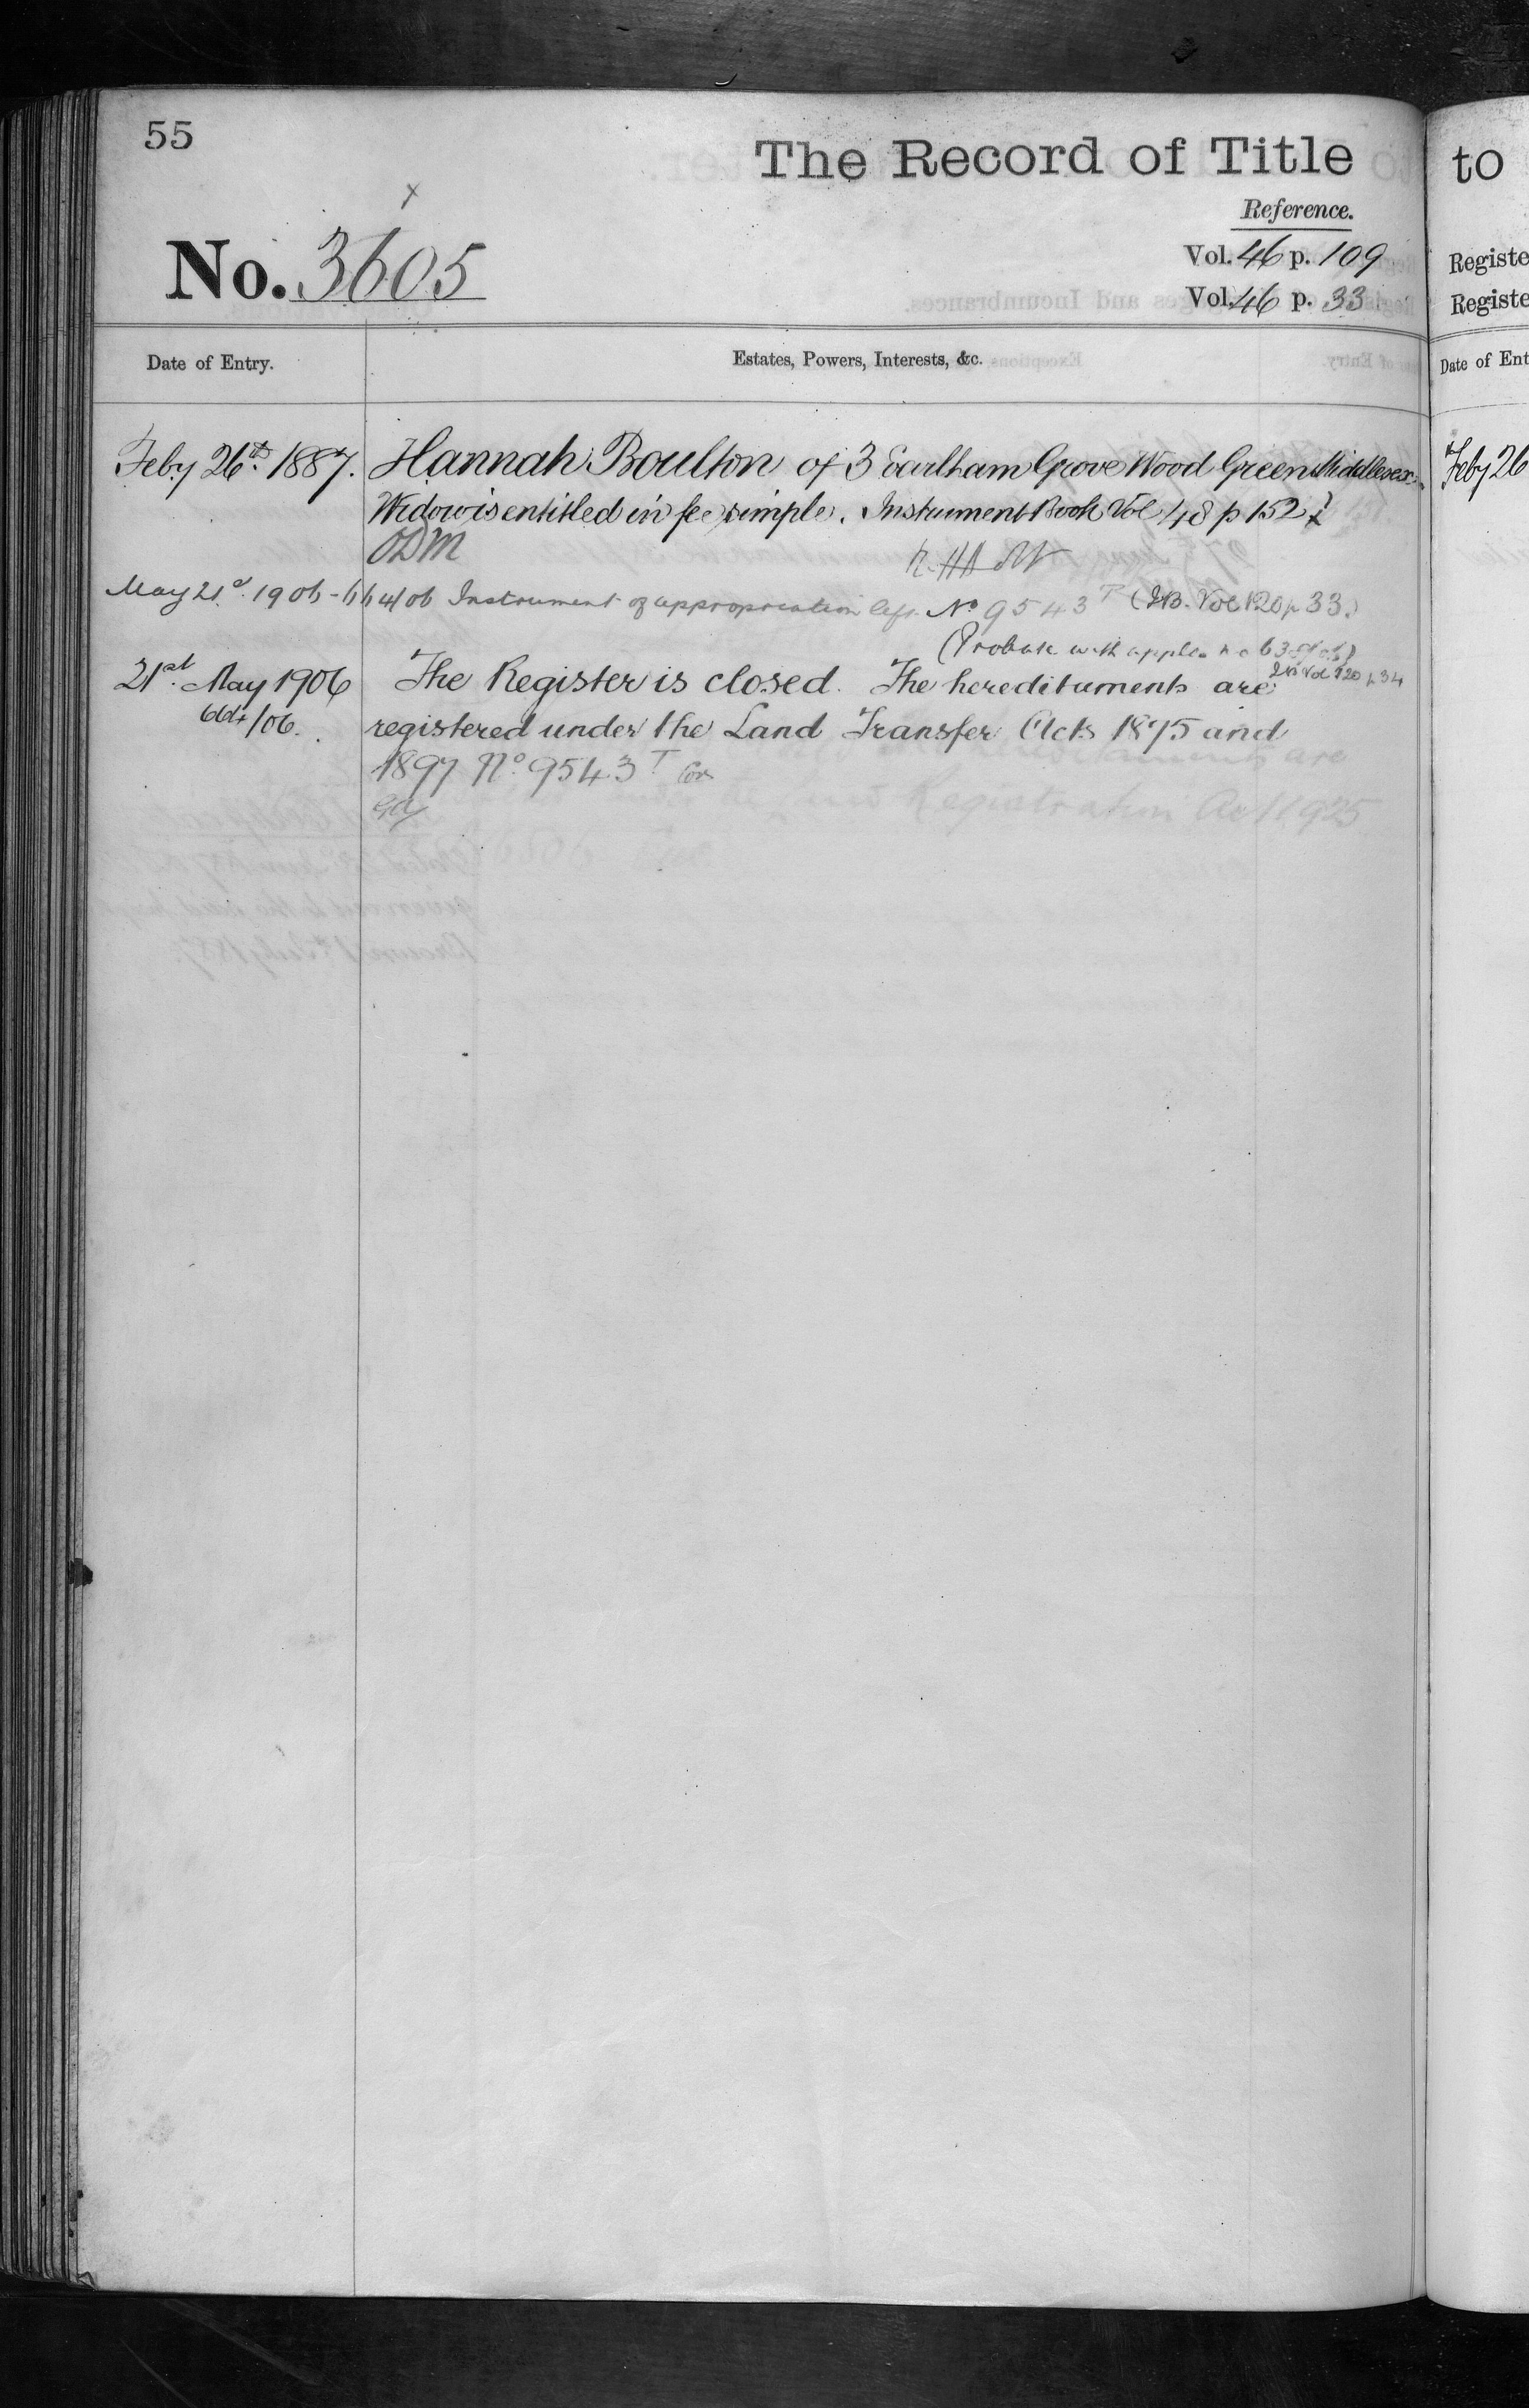 55
The Record of Title
to
Reference.
No. 3605
Vol. 46 p. 109
Vol. 46 p. 33
Registe
Registe
Date of Entry.
Estates, Powers, Interests, &c.
Date of Ent
Feby 26th 1887. Hannah Boulton of 3 Earlham Grove Wood Green Middlesex
Feby 26
Widow is entitled in fee simple. Instrument Book Vol 48 p 152
ODM
May 21st 1906 - 664/06 Instrument of appropriation No 9543 T (I.B. Vol 120 p 33.)
(Probate with appln
I.B. Vol 120 p 34
21st May 1906 The Register is closed. The hereditaments are
664/06. registered under the Land Transfer Acts 1875 and
1897 No 9543 T
Registration Act 1925